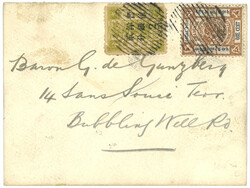 Baron G. de Gunzberg
14 Sans Souci Terr.
Bubbling Well Rd.